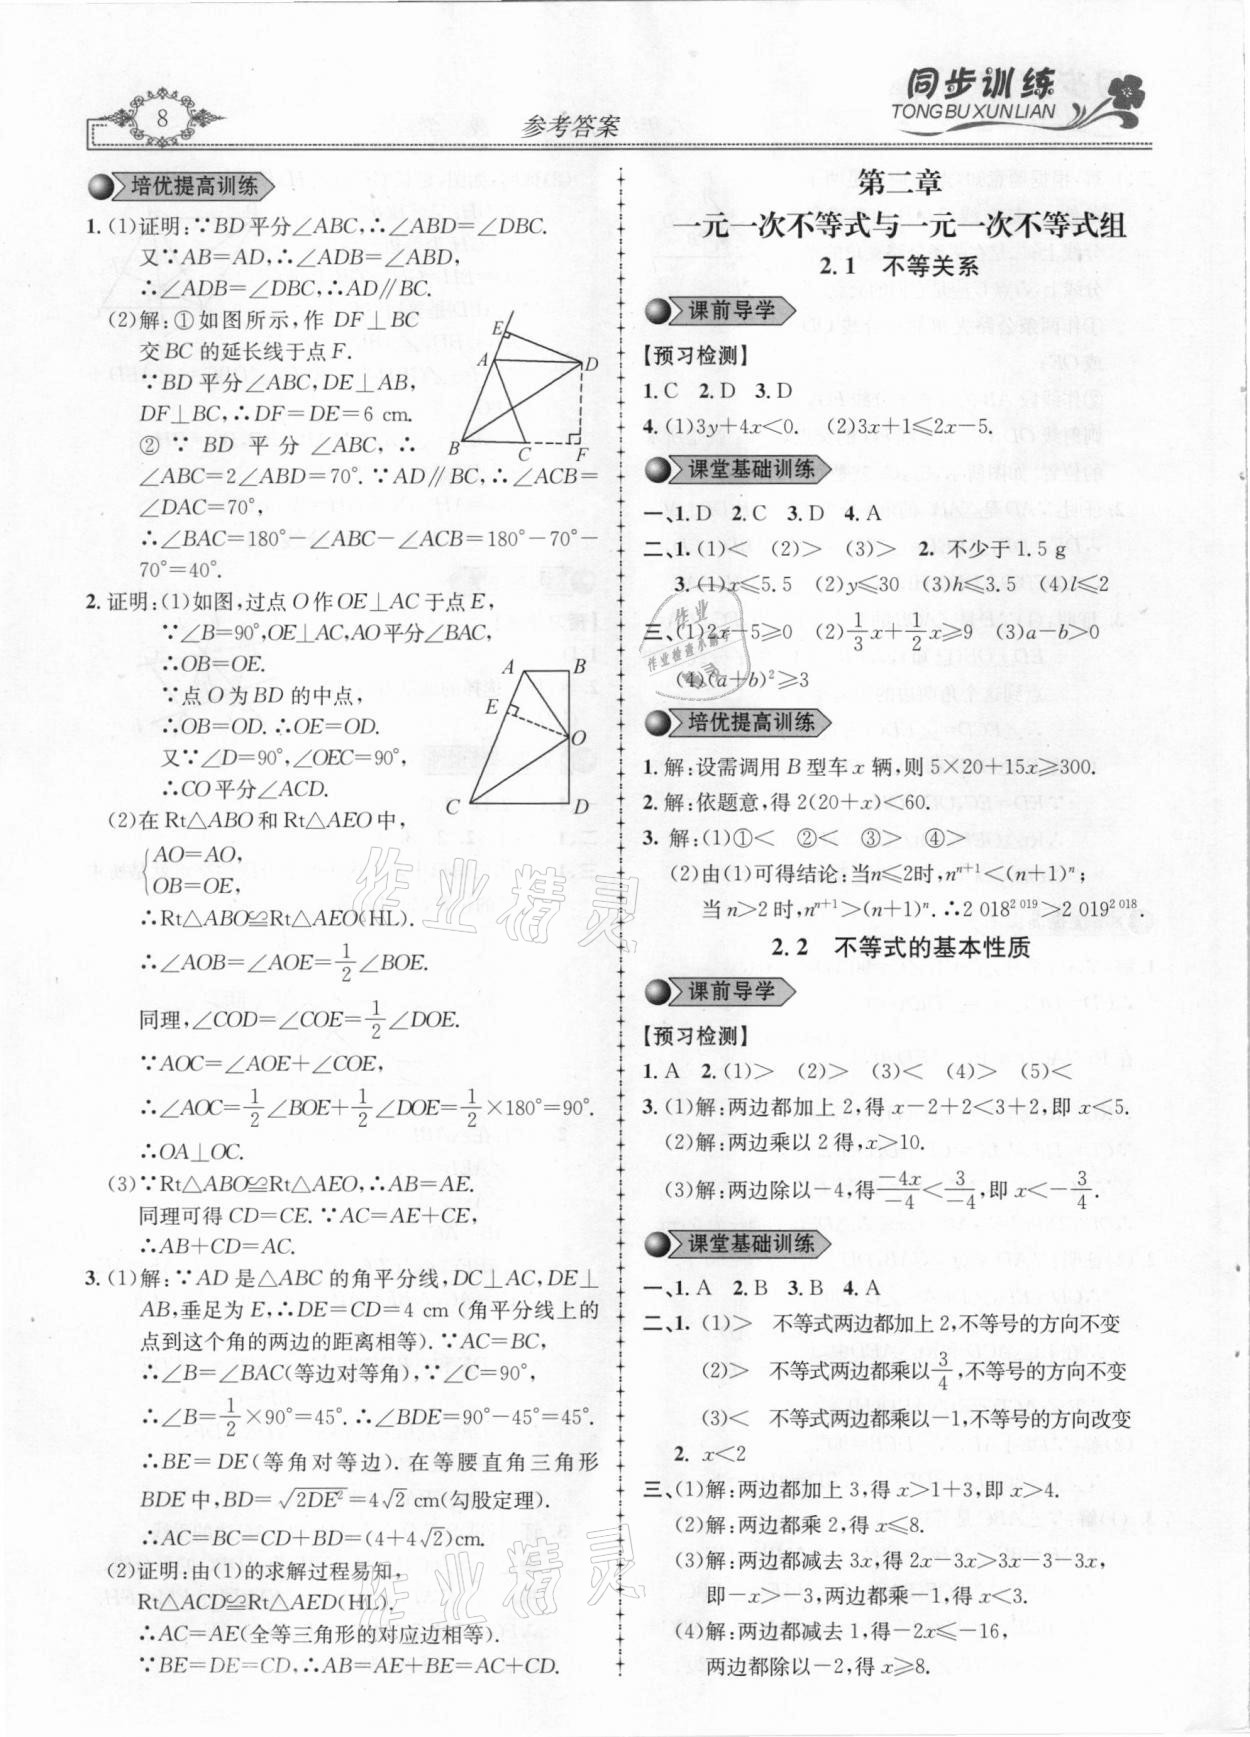 8
参考答案
同步训练
TONGBUXUNLIAN
培优提高训练
1. (1)证明:∵BD平分∠ABC,∴∠ABD=∠DBC.
又∵AB=AD,∴∠ADB=∠ABD,
∴∠ADB=∠DBC,∴AD∥BC.
(2)解:①如图所示,作 DF⊥BC
交 BC 的延长线于点 F.
∵BD 平分∠ABC,DE⊥AB,
DF⊥BC,∴DF=DE=6 cm.
② ∵ BD 平 分 ∠ABC,∴
∠ABC=2∠ABD=70°.∵AD∥BC,∴∠ACB=
∠DAC=70°,
∴∠BAC=180°-∠ABC-∠ACB=180°-70°-
70°=40°.
E
A
D
B
C
F
2. 证明:(1)如图,过点 O 作 OE⊥AC 于点 E,
∵∠B=90°,OE⊥AC,AO平分∠BAC,
∴OB=OE.
∵点 O 为 BD 的中点,
∴OB=OD.∴OE=OD.
又∵∠D=90°,∠OEC=90°,
∴CO 平分∠ACD.
A
B
E
O
C
D
(2)在 Rt△ABO 和 Rt△AEO 中,
{AO=AO,
OB=OE,
∴Rt△ABO≌Rt△AEO(HL).
∴∠AOB=∠AOE=1/2∠BOE.
同理,∠COD=∠COE=1/2∠DOE.
∵∠AOC=∠AOE+∠COE,
∴∠AOC=1/2∠BOE+1/2∠DOE=1/2×180°=90°.
∴OA⊥OC.
(3)∵Rt△ABO≌Rt△AEO,∴AB=AE.
同理可得 CD=CE.∵AC=AE+CE,
∴AB+CD=AC.
3. (1)解:∵AD 是△ABC 的角平分线,DC⊥AC,DE⊥
AB,垂足为 E,∴DE=CD=4 cm (角平分线上的
点到这个角的两边的距离相等).∵AC=BC,
∴∠B=∠BAC(等边对等角).∵∠C=90°,
∴∠B=1/2×90°=45°.∴∠BDE=90°-45°=45°.
∴BE=DE(等角对等边).在等腰直角三角形
BDE 中,BD=√2DE²=4√2 cm(勾股定理).
∴AC=BC=CD+BD=(4+4√2)cm.
(2)证明:由(1)的求解过程易知,
Rt△ACD≌Rt△AED(HL).
∴AC=AE(全等三角形的对应边相等).
∵BE=DE=CD,∴AB=AE+BE=AC+CD.
第二章
一元一次不等式与一元一次不等式组
2.1 不等关系
课前导学
【预习检测】
1. C 2. D 3. D
4. (1)3y+4x<0. (2)3x+1≤2x-5.
课堂基础训练
一、1. D 2. C 3. D 4. A
二、1. (1)< (2)> (3)> 2. 不少于 1.5 g
3. (1)x≤5.5 (2)y≤30 (3)h≤3.5 (4)l≤2
三、(1)2x-5≥0 (2)1/3x+1/2x≥9 (3)a-b>0
(4)(a+b)²≥3
培优提高训练
1. 解:设需调用 B 型车 x 辆,则 5×20+15x≥300.
2. 解:依题意,得 2(20+x)<60.
3. 解:(1)①< ②< ③> ④>
(2)由(1)可得结论:当n≤2时,nⁿ⁺¹<(n+1)ⁿ;
当 n>2 时,nⁿ⁺¹>(n+1)ⁿ.∴2 018² ⁰¹⁹>2 019² ⁰¹⁸.
2.2 不等式的基本性质
课前导学
【预习检测】
1. A 2. (1)> (2)> (3)< (4)> (5)<
3. (1)解:两边都加上 2,得 x-2+2<3+2,即 x<5.
(2)解:两边乘以 2 得,x>10.
(3)解:两边除以-4,得-4x/-4<3/-4,即 x<-3/4.
课堂基础训练
一、1. A 2. B 3. B 4. A
二、1. (1)> 不等式两边都加上 2,不等号的方向不变
(2)> 不等式两边都乘以3/4,不等号的方向不变
(3)< 不等式两边都乘以-1,不等号的方向改变
2. x<2
三、(1)解:两边都加上 3,得 x>1+3,即 x>4.
(2)解:两边都乘 2,得 x≤8.
(3)解:两边都减去 3x,得 2x-3x>3x-3-3x,
即-x>-3,两边都乘-1,得 x<3.
(4)解:两边都减去 1,得-2x≤-16,
两边都除以-2,得 x≥8.
作业精灵
作业精灵
作业
作业检查小助手
精灵